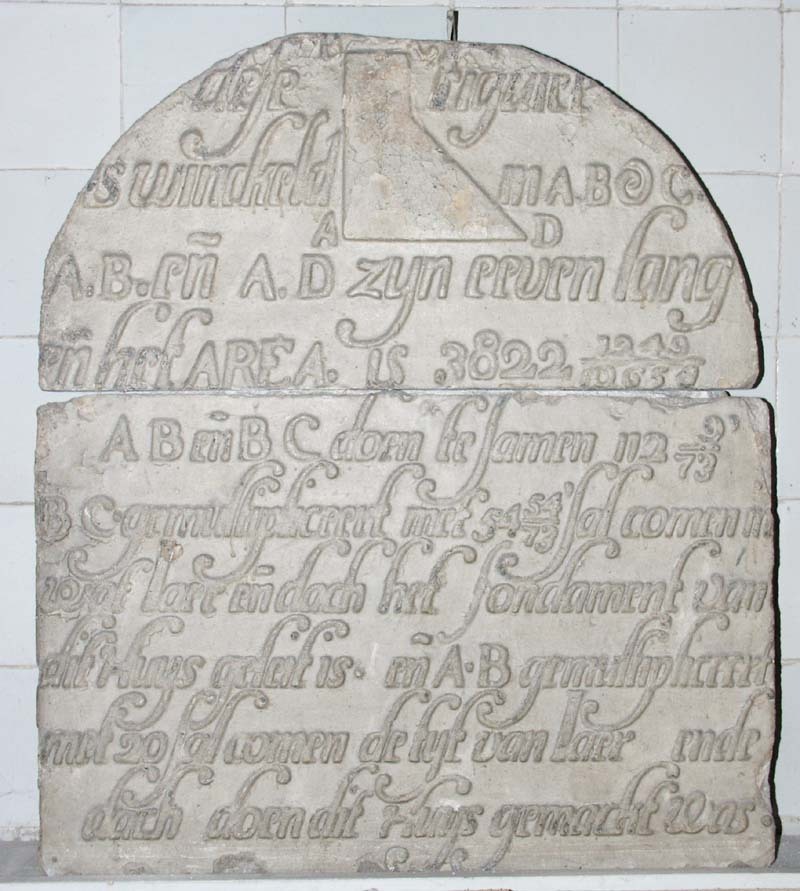 B
dese
is winckel in A.B. C.
A D
A.B. eñ A.D zyn eeven lang
eñ het AREA. is 3822 1249/10658
AB eñ BC doen te samen 112 9/73
BC gemultipliceert met 54 54/73 sal comen in
wat Iaer eñ dach het fondament van
dit Huys geleit is. eñ A.B gemultipliceert
met 20 sal comen de tyt van Iaer ende
dach doen dit Huys gemackt was.